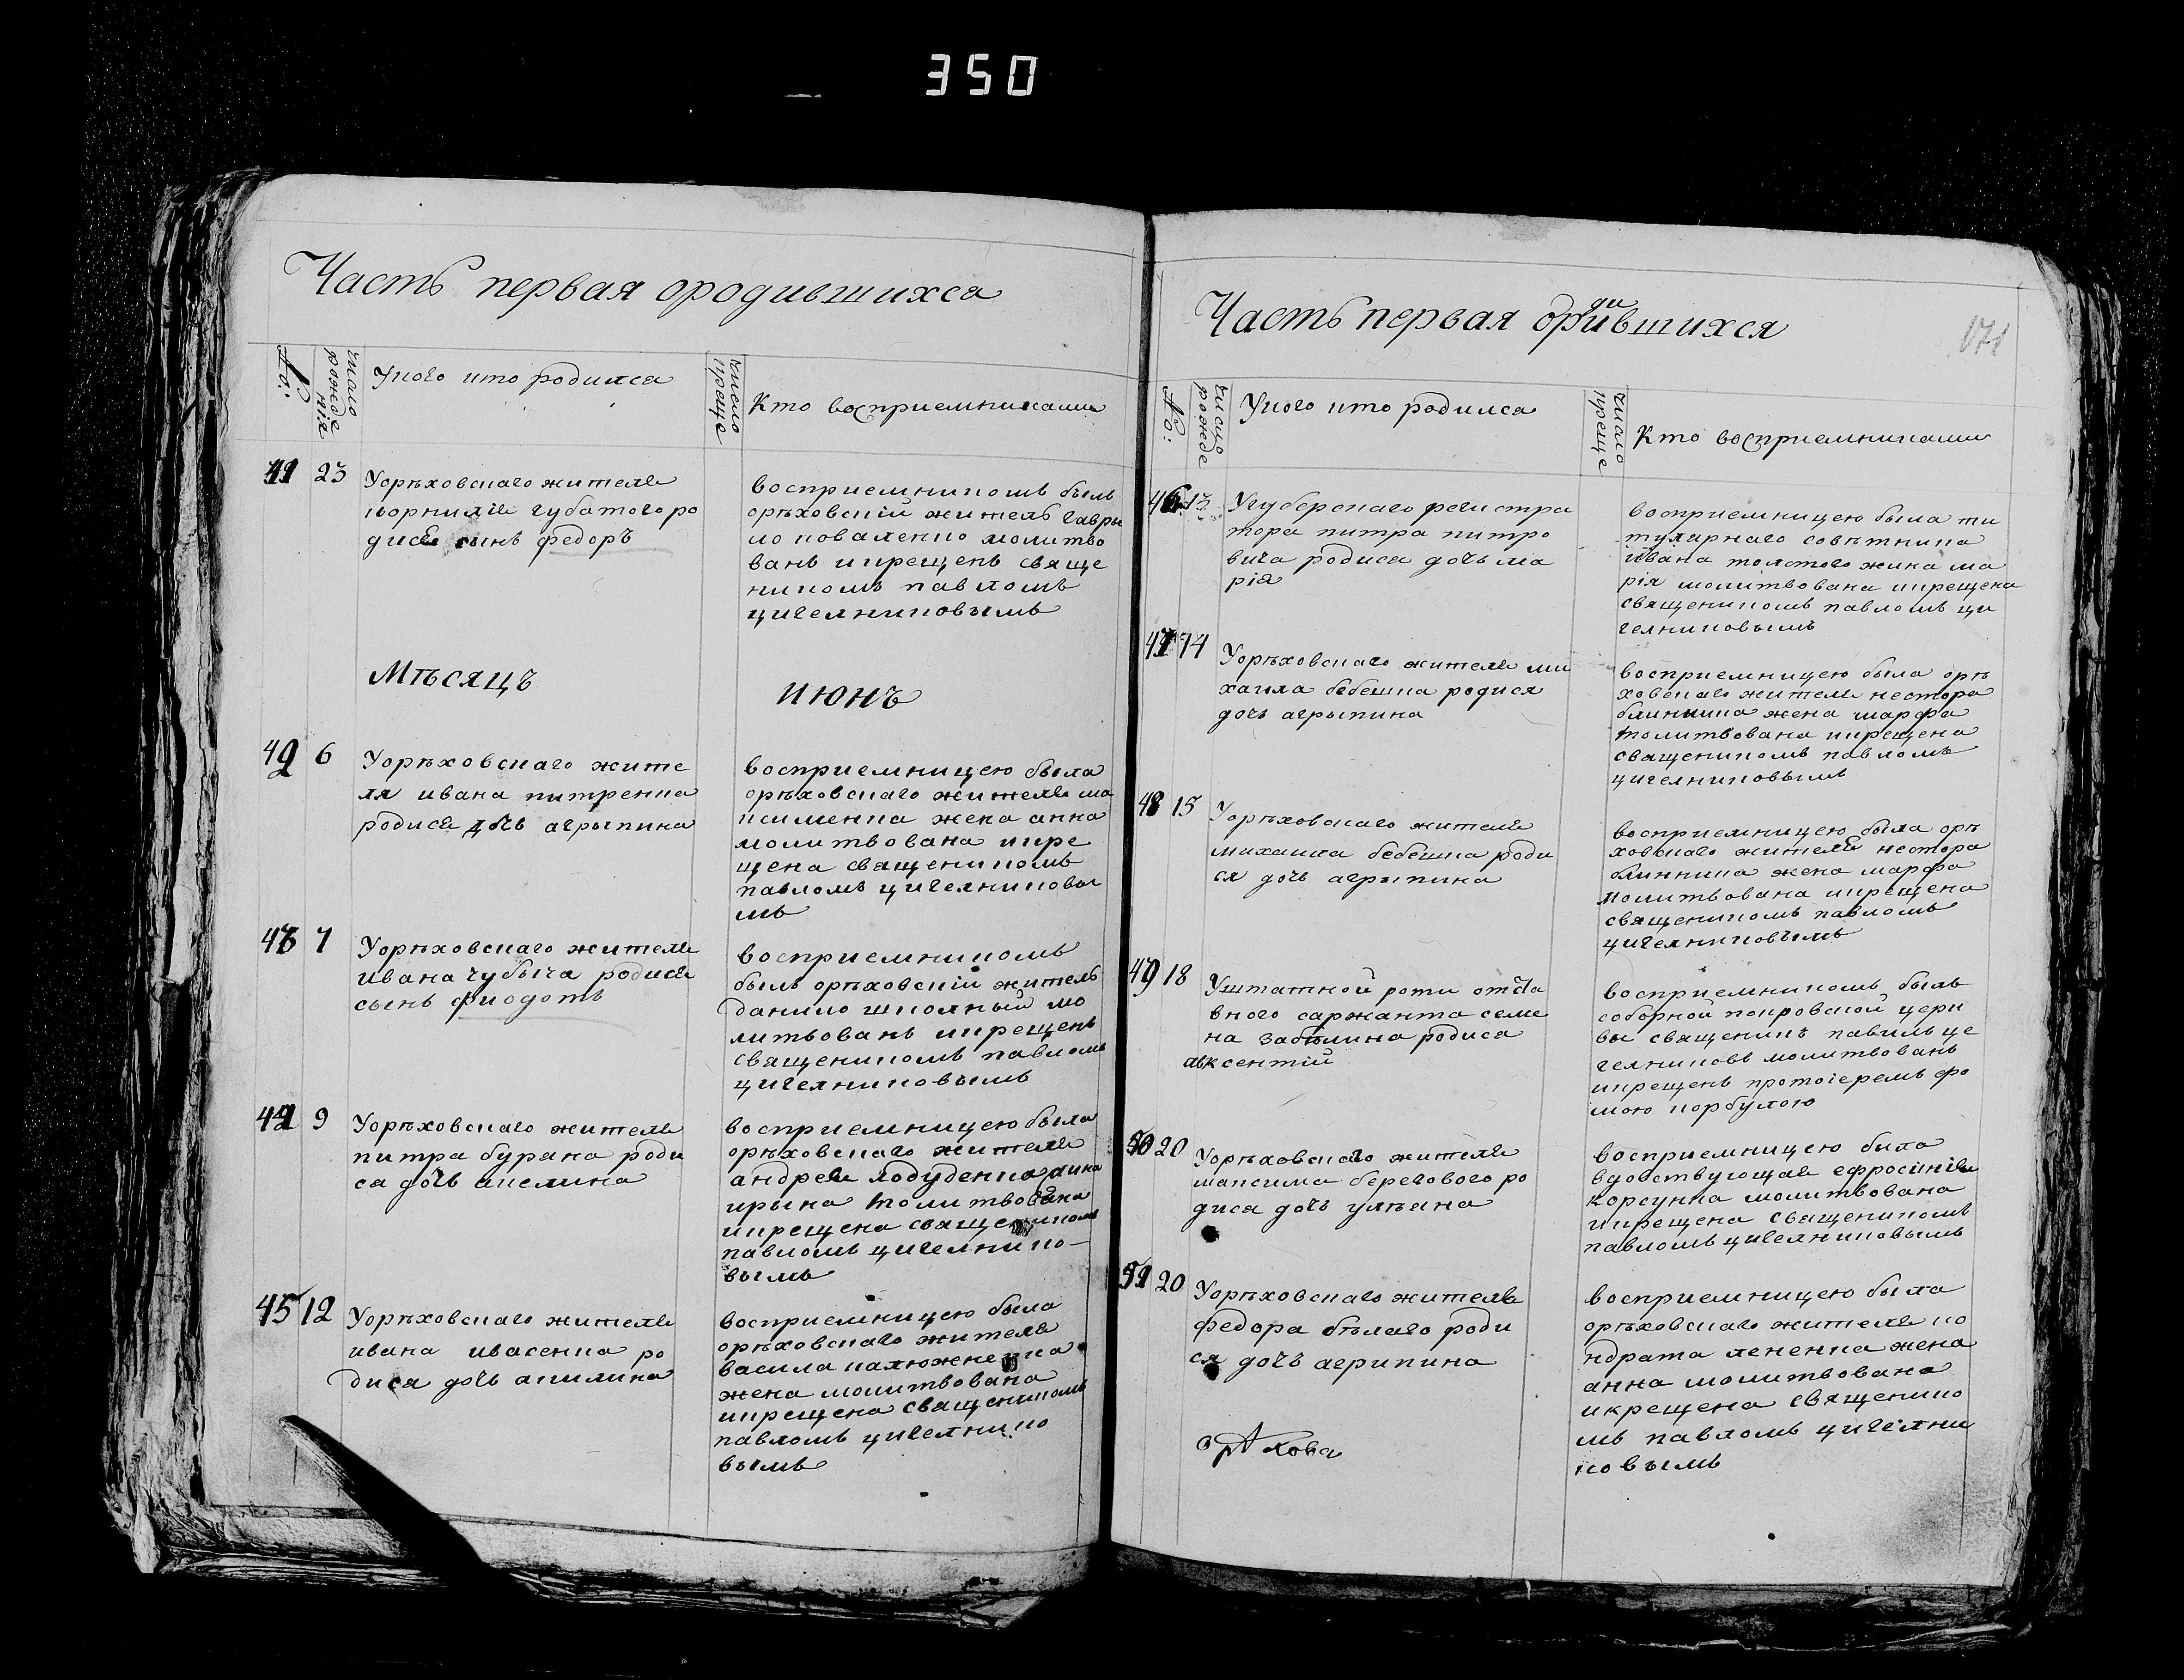 350
Часть первая ородившихса
№:
число рожде нія
Укого кто родилса
число креще
Кто восприемниками
41 23
Уорѣховскаго жителя
корнилія губатого ро
дися сынъ федоръ
восприемникомъ былъ
орѣховскій житель гаври
ло коваленко молитво
ванъ икрещенъ свяще
никомъ павломъ
цигелниковымъ
Мѣсяцъ
июнъ
42 6
Уорѣховскаго жите
ля ивана питренка
родися дочь агрыпина
восприемницею была
орѣховскаго жителя ма
ксименка жена анна
молитвована икре
щена священикомъ
павломъ цигелниковы
мъ
43 7
Уорѣховскаго жителя
ивана чубыча родися
сынъ фиодотъ
восприемникомъ
былъ орѣховскій житель
данило школный мо
литвованъ икрещенъ
священикомъ павломъ
цигелниковымъ
44 9
Уорѣховскаго жителя
питра бурана роди
са дочь акелина
восприемницею была
орѣховскаго жителя
андрея лодуденка жина
ирына молитвована
икрещена священикомъ
павломъ цигелнико-
вымъ
45 12
Уорѣховскаго жителя
ивана ивасенка ро
диса дочь акилина
восприемницею была
орѣховскаго жителя
васила калюженка
жена молитвована
икрещена священикомъ
павломъ цигелнико
вымъ
Часть первая ородившихся
171
№:
число рожде
Укого кто родилса
число креще
Кто восприемниками
46 13
Угуберскаго регистра
тора питра питро
вича родиса дочь ма
рія
восприемницею была ти
туларнаго совѣтника
ивана толстого жина ма
рія молитвована икрещена
священикомъ павломъ ци
гелниковымъ
47 14
Уорѣховскаго жителя ми
хаила бебешка родися
дочь агрыпина
восприемницею была орѣ
ховскаго жителя нестора
блинника жена марфа
молитвована икрещена
священикомъ павломъ
цигелниковымъ
48 15
Уорѣховскаго жителя
михаила бебешка роди
ся дочь агрыпина
восприемницею была орѣ
ховскаго жителя нестора
блинника жена марфа
молитвована икрещена
священикомъ павломъ
цигелниковымъ
49 18
Уштатной роти отста
вного саржанта семе
на забѣлина родиса
авксентій
восприемникомъ былъ
соборной покровской церк
вы священикъ павилъ це
гелниковъ молитвованъ
икрещенъ протоіеремъ фо
мою корбулою
50 20
Уорѣховскаго жителя
максима берегового ро
дися дочь уляана
восприемницею была
вдовствующая ефросинія
корсунка молитвована
икрещена священикомъ
павломъ цигелниковымъ
51 20
Уорѣховскаго жителя
федора бѣлаго роди
ся дочъ агрипина
восприемницею была
орѣховскаго жителя ко
ндрата лененка жена
анна молитвована
икрещена священико
мъ павломъ цигелни
ковымъ
орѣхова